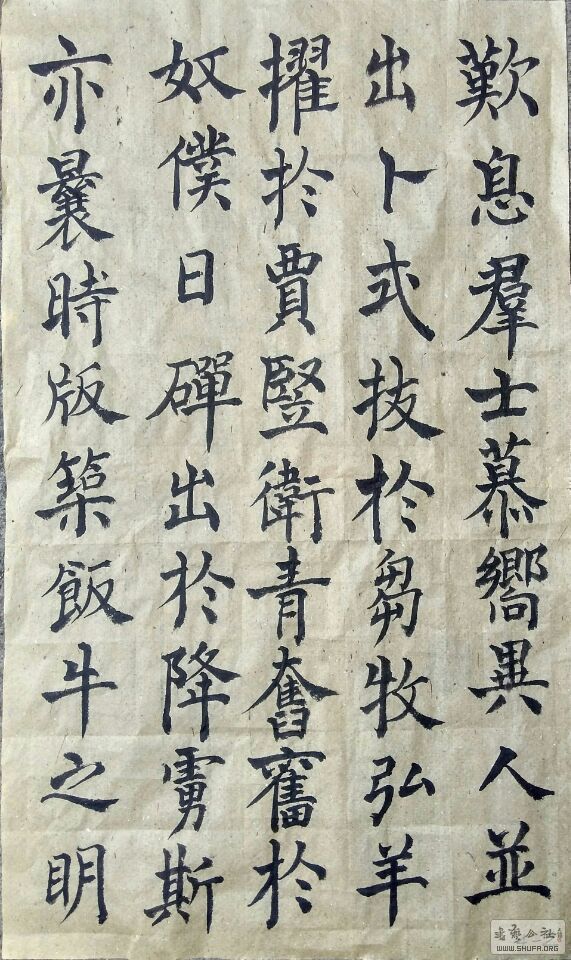 歎息羣士慕嚮異人並
出卜式技於芻牧弘羊
擢於賈豎衛青奮於
奴僕日磾出於降虜斯
亦曩時版築飯牛之明
书艺公社
WWW.SHUFA.ORG